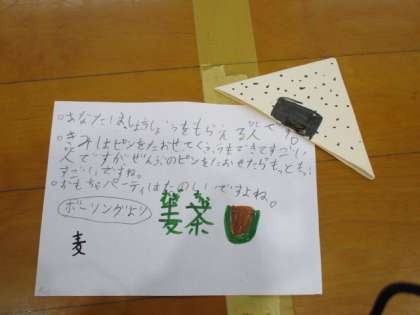 ○あなたはしょうじょうをもらえる人です。
○きみはピンをたおせてくろうもできてすごい
人ですがぜんぶのピンをたおせたらもっともっ
すごいですね。
○おもちゃパーティはたのしいですよね。
ボーリングより
麦茶
麦